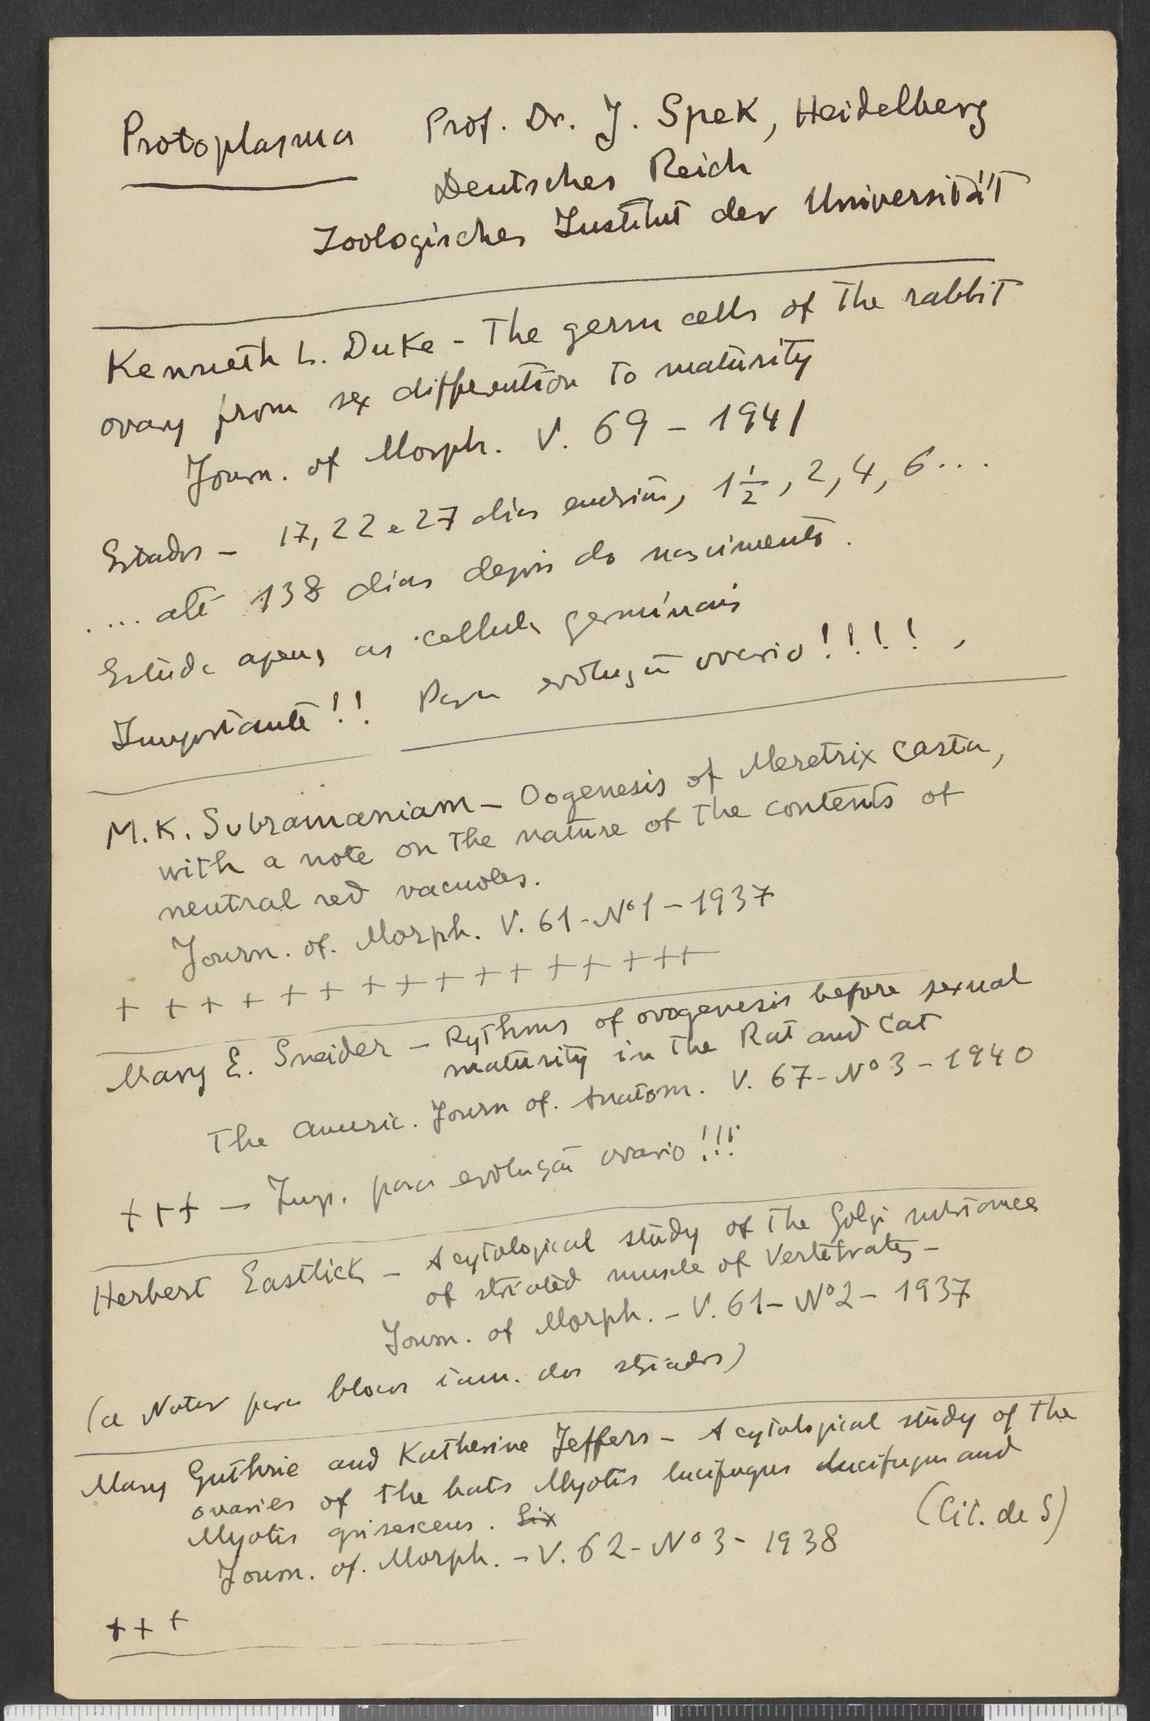 Protoplasma Prof. Dr. J. Spek, Heidelberg
Deutsches Reich
Zoologisches Institut der Universität
Kenneth L. Duke - The germ cells of the rabbit
ovary from sex differention to maturity
Journ. of Morph. V. 69 - 1941
Estados - 17, 22 e 27 dias embrião, 1 1/2, 2, 4, 6...
.... até 138 dias depois do nascimento.
Estuda apenas as cellulas germinais
Importante!! Para evolução ovario!!!!
M.K. Subramaniam - Oogenesis of Meretrix casta,
with a note on the nature of the contents of
neutral red vacuoles.
Journ. of. Morph. V. 61 - Nº1 - 1937
+ + + + + + + + + + + + + + + +
Mary E. Sneider - Rythms of ovogenesis before sexual
maturity in the Rat and Cat
The Americ. Journ of. Anatom. V. 67 - Nº3 - 1940
+++ - Imp. para evolução ovario!!!
Herbert Eastlick - A cytological study of the Golgi substance
of striated muscle of Vertebrates -
Journ. of Morph. - V. 61 - Nº2 - 1937
(a Notar para dos striados)
Mary Guthrie and Katherine Jeffers - A cytological study of the
ovaries of the bats Myotis lucifugus lucifugus and
Myotis grisescens. Six
(Cit. de S)
Journ. of. Morph. - V. 62 - Nº3 - 1938
+++